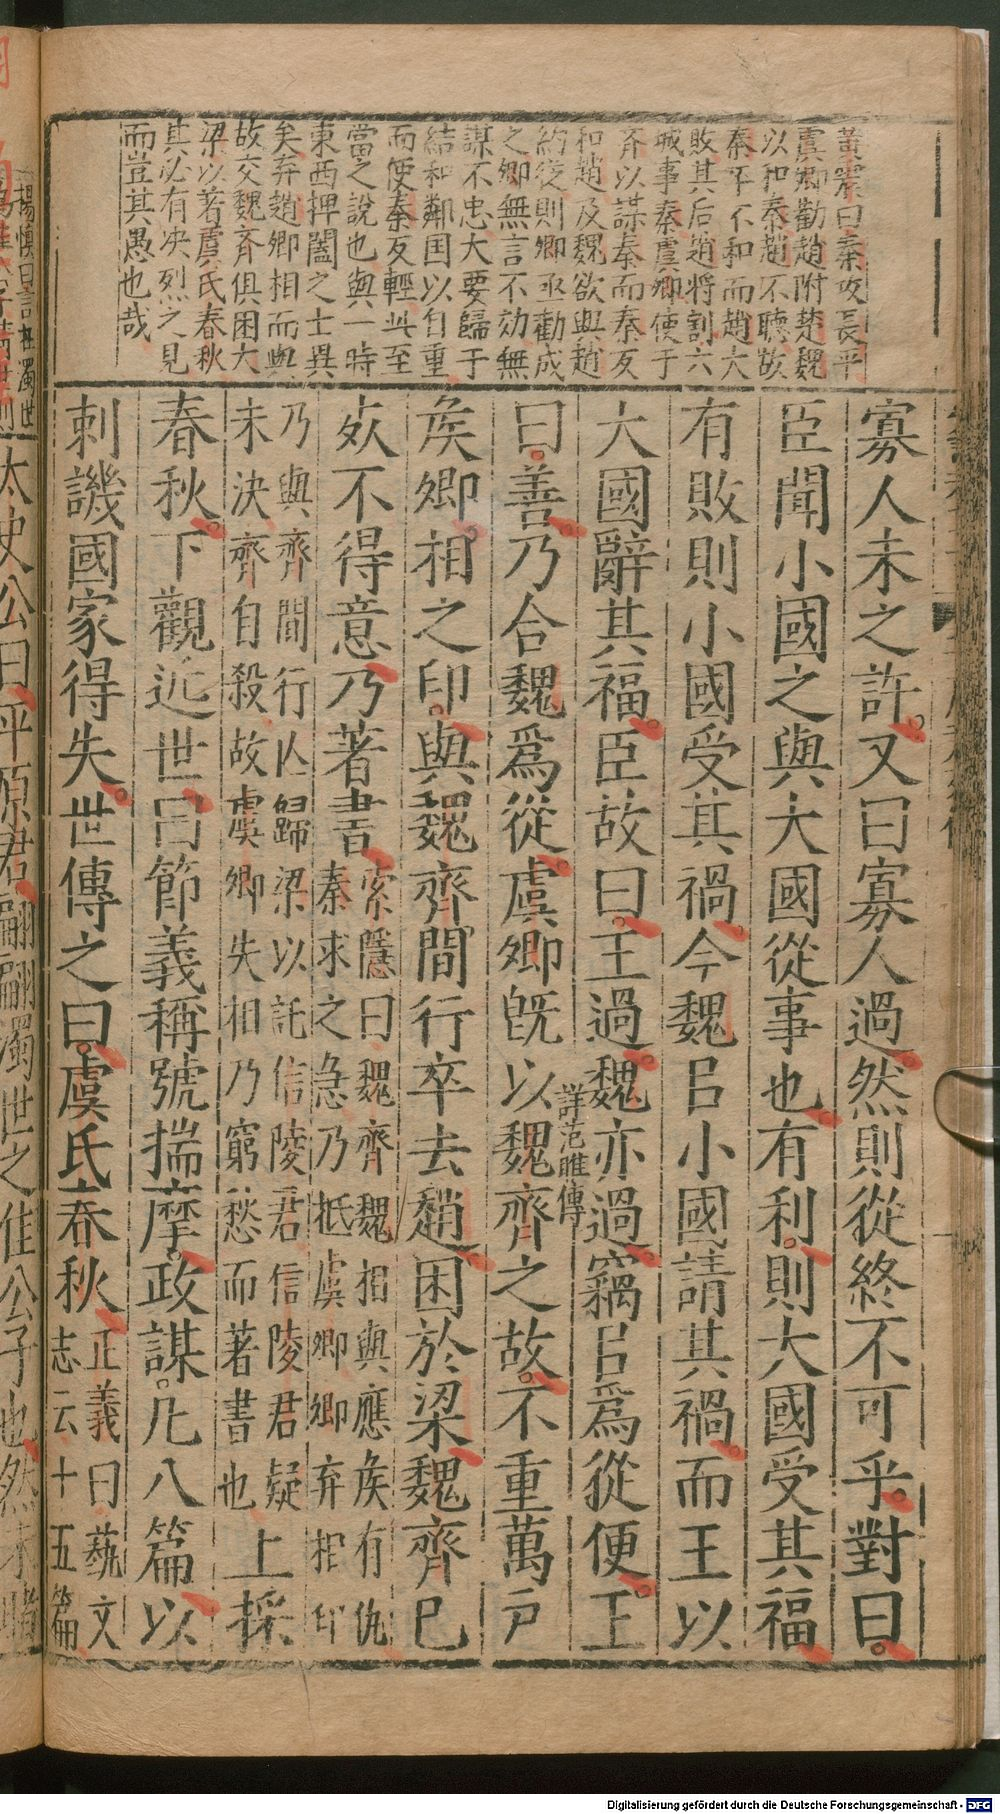 黃震曰秦攻長平
虞卿勸趙附楚魏
以和秦趙不聽故
秦卒不和而趙大
敗其后趙將割六
城事秦虞卿使于
斉以謀秦而秦反
和趙及魏欲與趙
約從則卿亟勸成
之卿無言不効無
謀不忠大要歸于
結和鄰国以自重
而使秦反輕此至
當之說也與一時
東西捭闔之士異
矣弃趙卿相而與
故交魏斉俱困大
梁以著虞氏春秋
其必有决烈之見
而豈其愚也哉
寡人未之許又曰寡人過然則從終不可乎對曰
臣聞小國之與大國從事也有利則大國受其福
有敗則小國受其禍今魏㠯小國請其禍而王以
大國辭其福臣故曰王過魏亦過竊㠯爲從便王
曰善乃合魏爲從虞卿既以魏齊之故不重萬戸
詳范睢傳
矦卿相之印與魏齊間行卒去趙困於梁魏齊已
𣦸不得意乃著書
索隱曰魏齊魏相與應矦有仇
秦求之急乃抵虞卿卿弃相印
乃與齊間行亾歸梁以託信陵君信陵君疑
未決齊自殺故虞卿失相乃窮愁而著書也
上採
春秋下觀近世曰節義稱號揣摩政謀凡八篇以
刺譏國家得失世傳之曰虞氏春秋
正義曰蓺文
志云十五篇
楊愼曰言在濁世
太史公曰平原君翩翩濁世之佳公子也然未睹
Digitalisierung gefördert durch die Deutsche Forschungsgemeinschaft - DFG